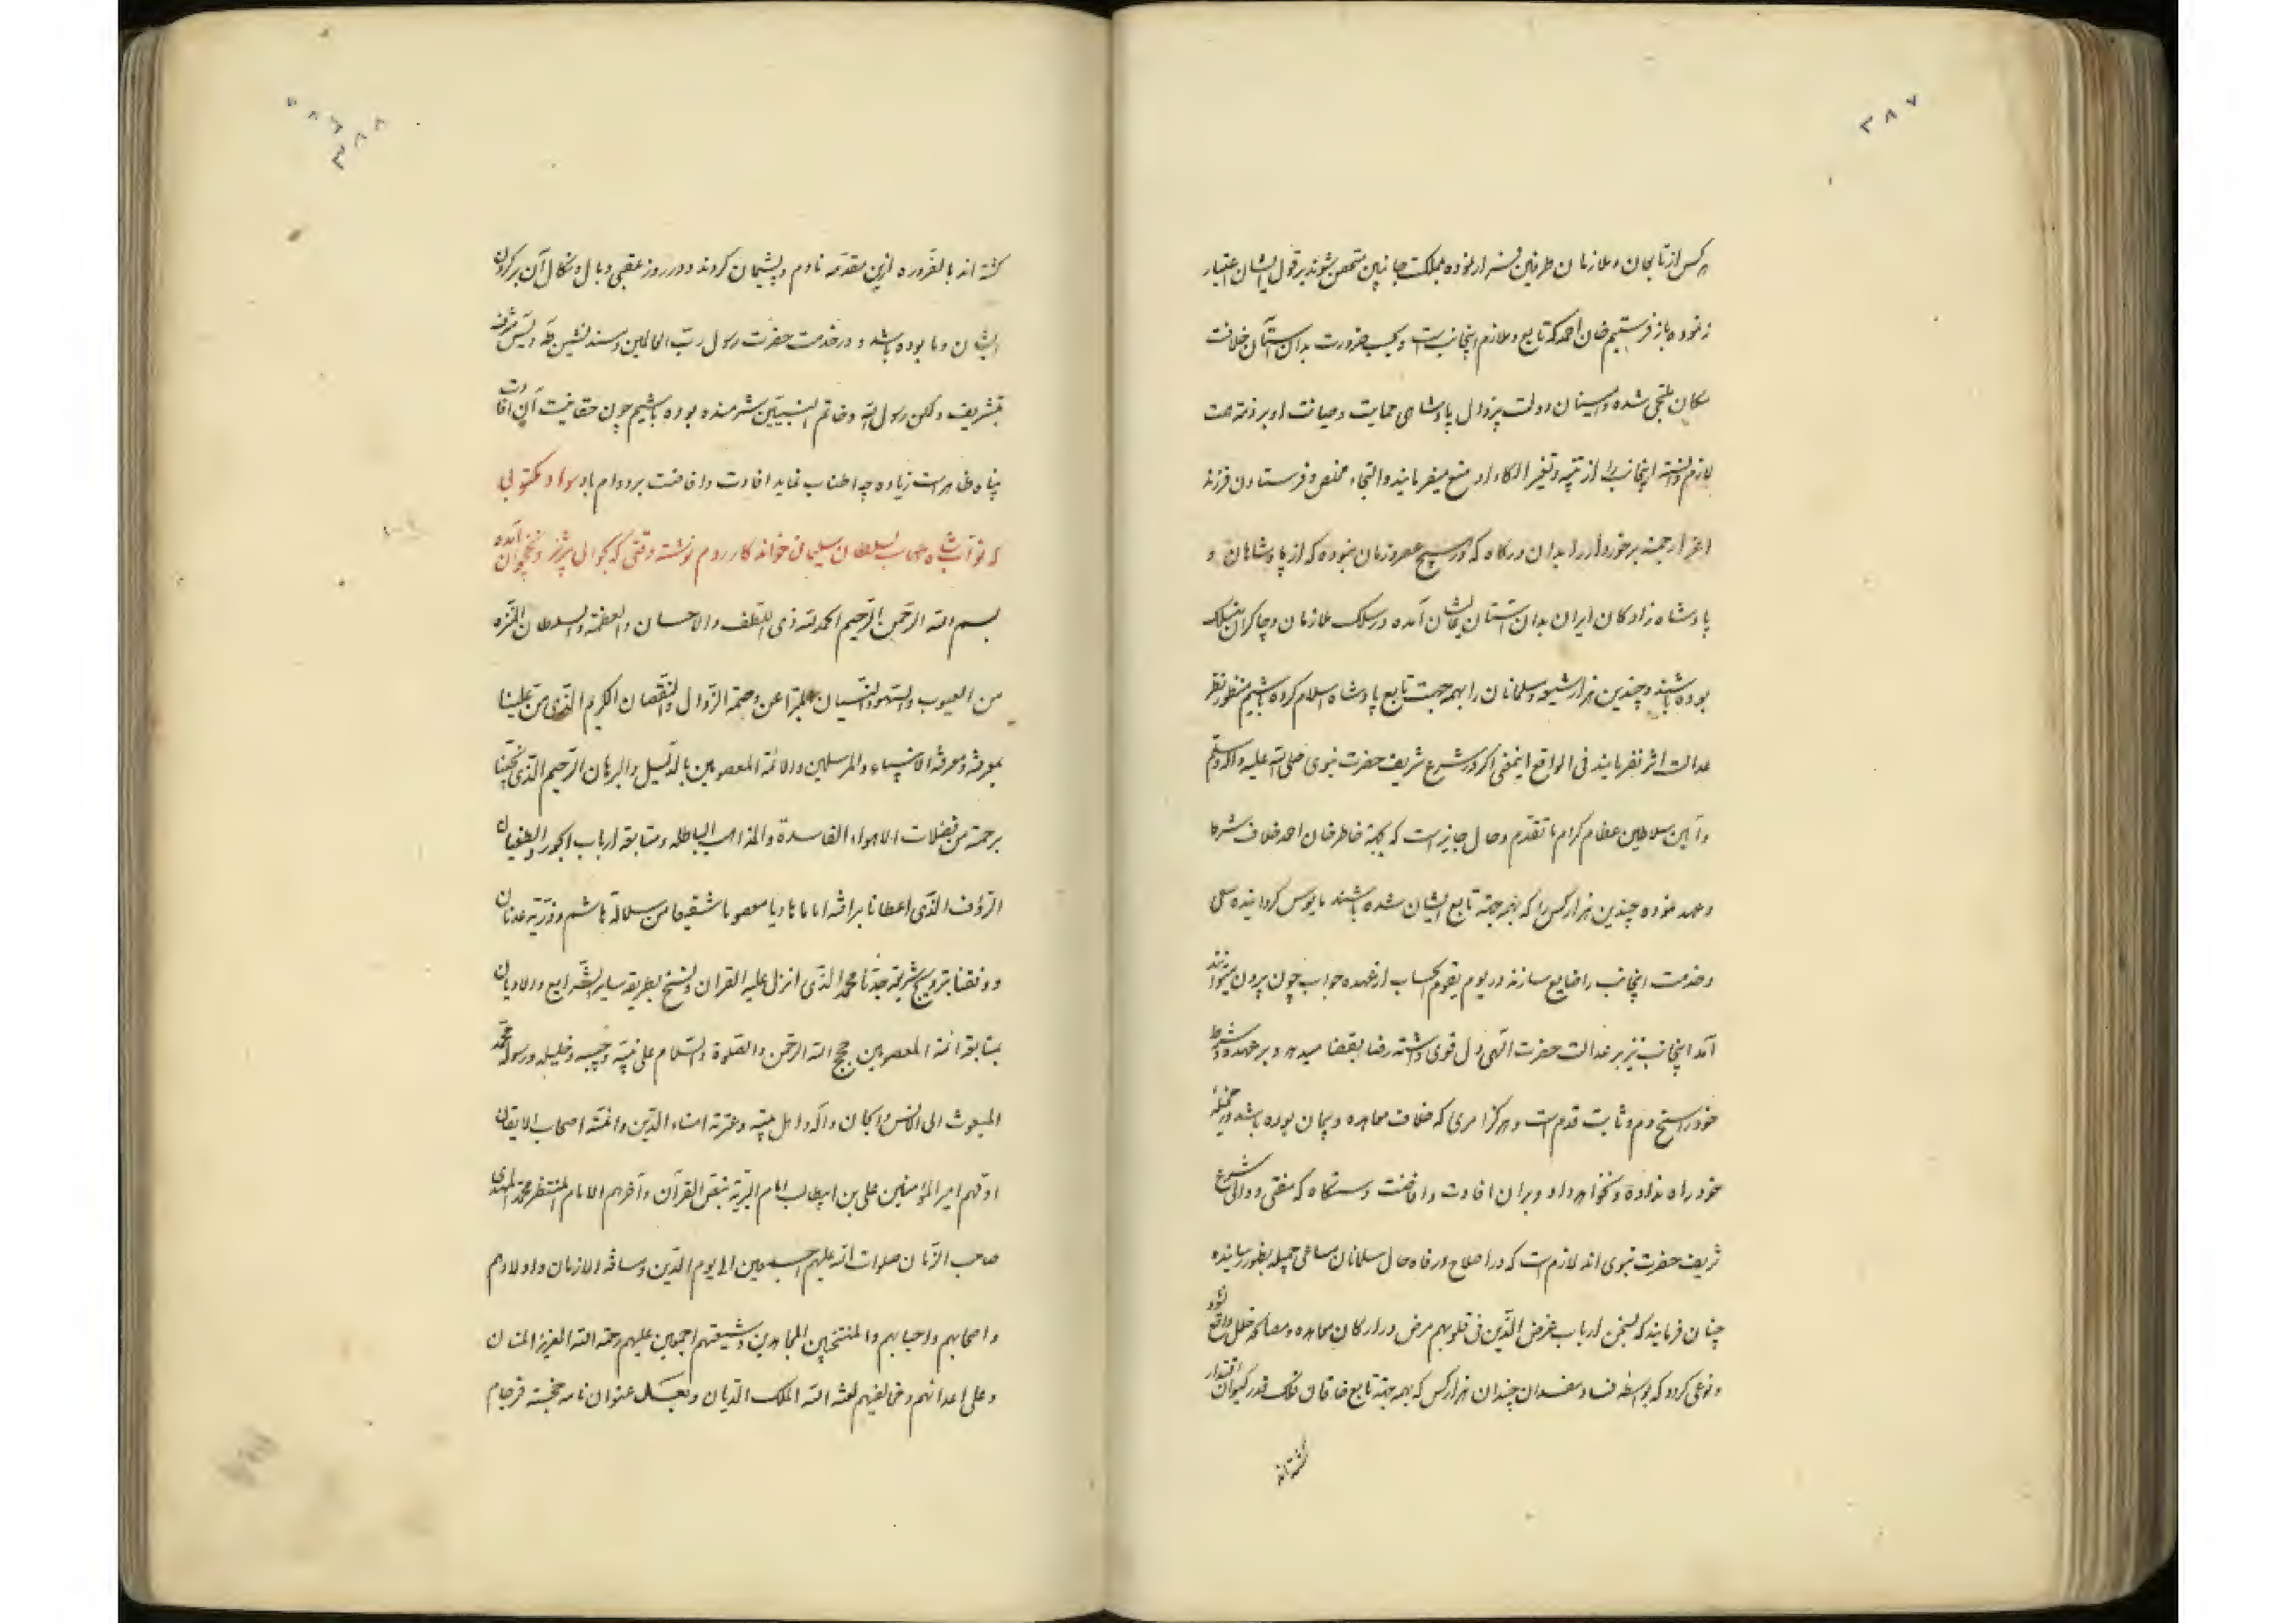 ۳۸۷
هر کس از تابعان و ملازمان طرفین فرار نموده بمملکت جانبین متحصن شوند بر قول ایشان اعتبار
ننموده باز فرستیم خان احمد که تابع و ملازم اینجانب است و بحسب ضرورت بدان آستان خلافت
مکان ملتجی شده و منسبان دولت بیزوال پادشاهی حمایت و صیانت او بر ذمه همت
لازم دانسته اینجانب را از تنبیه و تغیر الکاء او منع میفرمایند و التجاء مخلص و فرستادن فرزند
اعز ارجمند برخوردار را بدان درکاه که در هیچ عصر و زمان نبوده که از پادشاهان و
پادشاه زادکان ایران بدان آستان آمده در سلک ملازمان و چاکران منسلک
بوده باشند و چندین هزار شیعه و مسلمانان را بهمه جهت تابع پادشاه اسلام کرده باشیم منظور نظر
عدالت اثر نفرمایند فی الواقع اینمعنی اگر در شرع شریف حضرت نبوی صلی الله علیه و آله وسلم
و آیین سلاطین عظام کرام ما تقدم و حال جایز است که بجهة خاطر خان احمد خلاف شرط
و عهد نموده چندین هزار کس را که بهمه جهة تابع ایشان شده باشند مایوس کردانیده سعی
و خدمت اینجانب را ضایع سازند در یوم یقوم الحساب از عهده جواب چون بیرون میتوانند
آمد اینجانب نیز بر عدالت حضرت الهی دل قوی داشته رضا بقضا میدهد و بر عهد و شرط
خود راسخ دم و ثابت قدم است و هرگز امری که خلاف معاهده و پیمان بوده باشد در مخیله
خود راه نداده و نخواهد داد و بر ان افادت و افاضت دستگاه که مفتی و والی شرع
شریف حضرت نبوی اند لازم است که در اصلاح و رفاه حال مسلمانان مساعی جمیله بظهور رسانیده
چنان فرمایند که بسخن ارباب غرض الذین فی قلوبهم مرض در ارکان معاهده و مصالحه خلل واقع نشود
و نوعی کردد که بواسطه فساد مفسدان چندان هزار کس که بهمه جهة تابع خاقان فلک قدر کیوان اقتدار
کشته اند
۳۸۸
کشته اند بالضروره ازین مقدمه نادم و پشیمان کردند و در روز عقبی وبال و نکال آن بر کردن
ایشان و ما بوده باشد و در خدمت حضرت رسول رب العالمین و مسند نشین طه و یس مشرف
بتشریف ولکن رسول الله و خاتم النبیین شرمنده بوده باشیم چون حقانیت آن افادت
پناه ظاهر است زیاده چه اطناب نماید افادت و افاضت بر دوام باد سواد مکتوبی
که نواب شاه طهماسب بسلطان سلیمان خواندکار روم نوشته وقتی که بحوالی تبریز و نخجوان آمده
بسم الله الرحمن الرحیم الحمد لله ذی اللطف و الاحسان و العظمة و السلطان المنزه
من العیوب و السهو و النسیان المبرا عن وصمة الزوال و النقصان الکریم الذی من علینا
بمعرفته و معرفة الانبیاء و المرسلین و الائمة المعصومین بالدلیل و البرهان الرحیم الذی نجینا
برحمته من مضلات الاهواء الفاسدة و المذاهب الباطله و متابعة ارباب الجور و الطغیان
الرؤف الذی اعطانا برافته اماما هادیا معصوما شفیعا من سلالة هاشم و ذریة عدنان
و وفقنا بترویج شریعة جدنا محمد الذی انزل علیه القران و نسخ بطریقه سایر الشرایع و الادیان
بمتابعة ائمة المعصومین حجج الله الرحمن و الصلوة و السلام علی نبیه و حبیبه و خلیله و رسوله محمد
المبعوث الی الانس و الجان و آله و اهل بیته و عترته امناء الدین و ائمة اصحاب الایقان
اولهم امیر المؤمنین علی بن ابیطالب امام البریة بنص القرآن و آخرهم الامام المنتظر محمد المهدی
صاحب الزمان صلوات الله علیهم اجمعین الی یوم الدین و ساقة الازمان و اولادهم
و اصحابهم و احبابهم و المنتخبین المجاهدین و شیعتهم اجمعین علیهم رحمة الله العزیز المنان
و علی اعدائهم و مخالفیهم لعنة الله الملک الدیان و بعد عنوان نامه خجسته فرجام